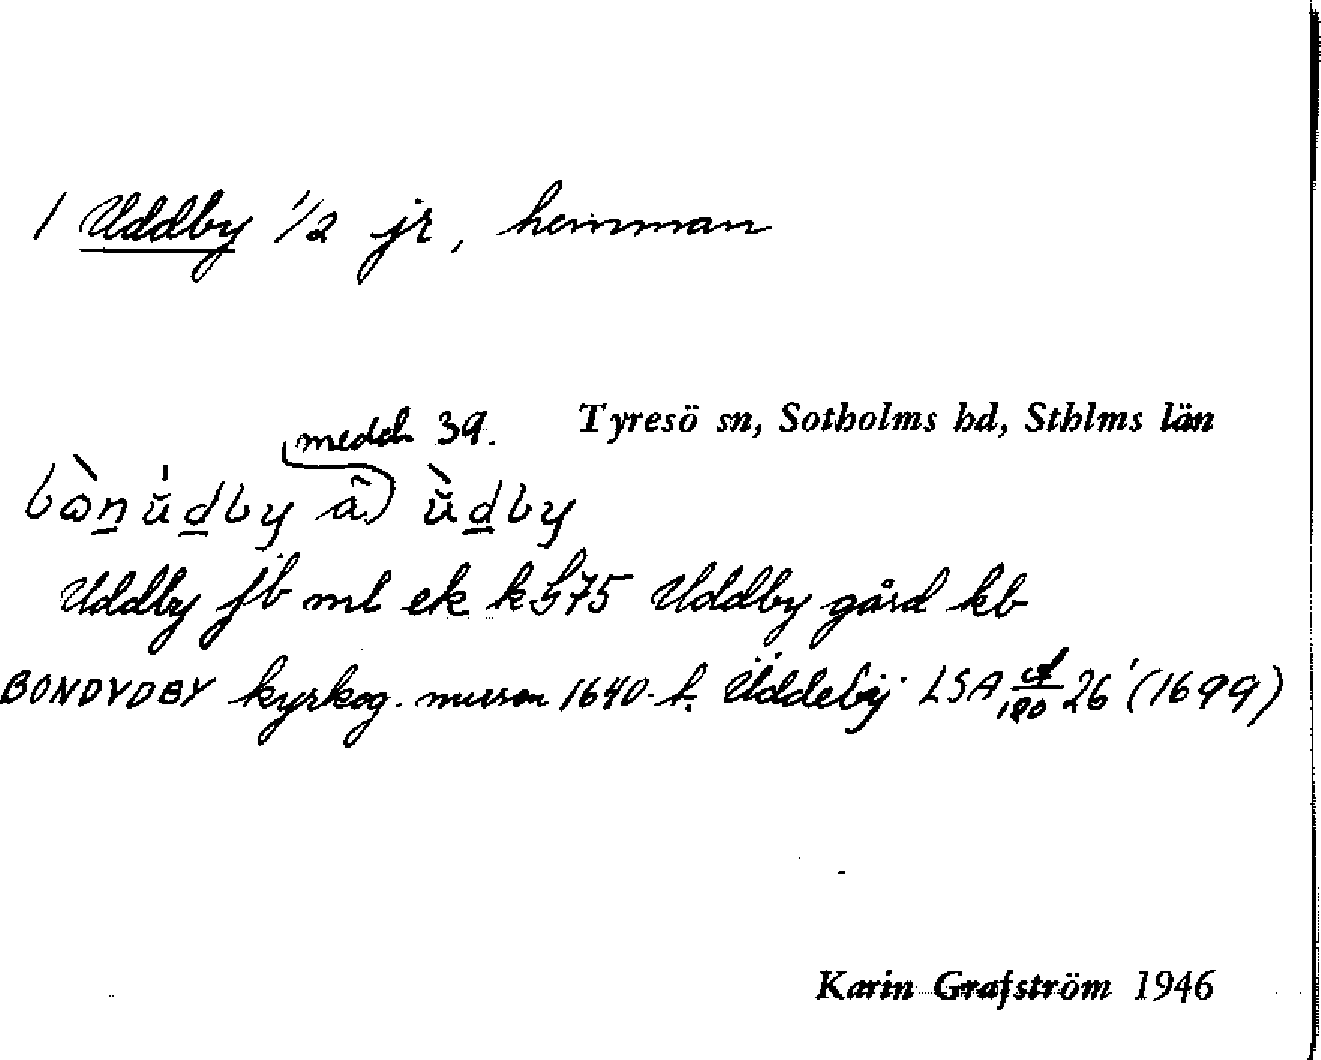 1 Uddby 1/2 jr, hemman
Tyresö sn, Sotholms hd, Sthlms län
medd. 39.
bὼnúdby â) ùdby
Uddby jb ml ek kG75 Uddby gård kb
BONDYDBY kyrkog. muren 1640-t. Üddebÿ LSA A/180 26' (1699)
Karin Grafström 1946